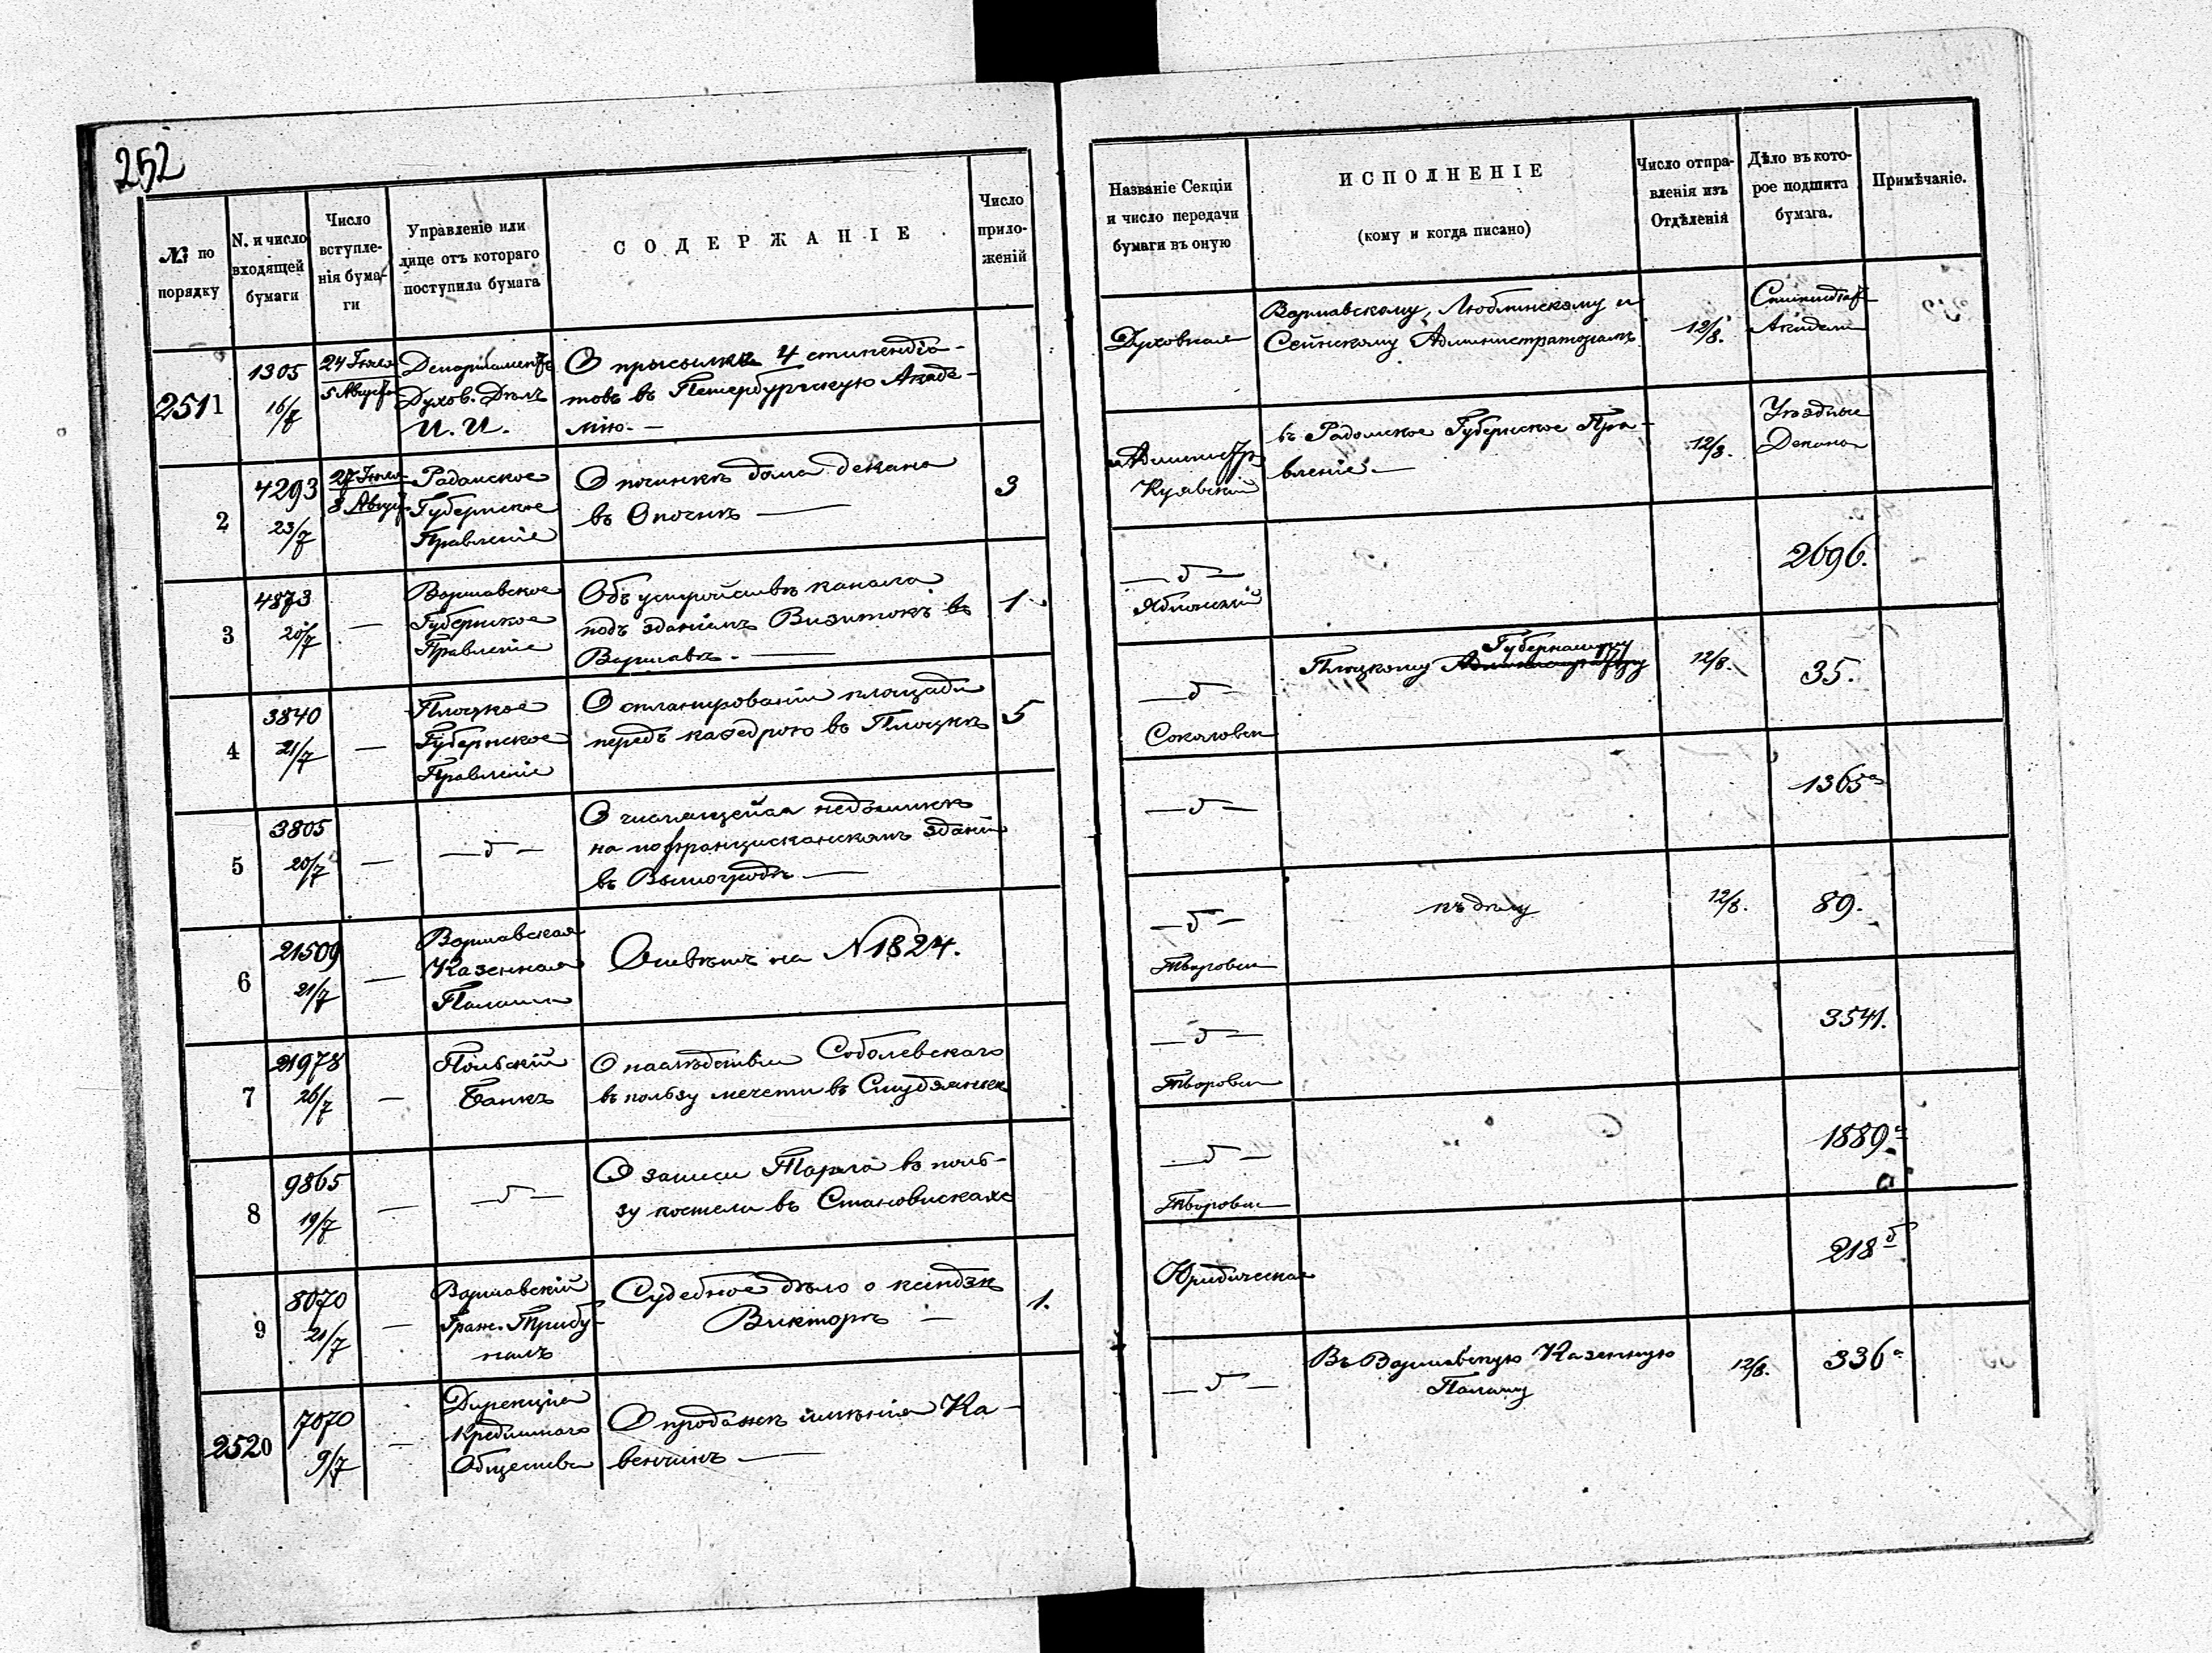 252
№ по порядку
N. и число входящей бумаги
Число вступленія бумаги
Управленіе или лице отъ котораго поступила бумага
СОДЕРЖАНІЕ
Число приложеній
Названіе Секціи и число передачи бумаги въ оную
ИСПОЛНЕНІЕ
(кому и когда писано)
Число отправленія изъ Отдѣленія
Дѣло въ которое подшита бумага.
Примѣчаніе.
2511
1305
16/7
24 Іюля
5 Август
Департаментъ
Духов. Дѣлъ
И. И.
О присылкѣ 4 стипендіа-
товъ въ Петербургскую Акаде-
мію. —
Духовная
Варшавскому, Люблинскому и
Сейнскому Администраторамъ
12/8.
Академ
2
4293
23/7
27 Іюля
8 Август
Радомское
Губернское
Правленіе
О починкѣ дома декана
въ Опочнѣ —
3
Администр
Куявскій
въ Радомское Губернское Пра-
вленіе —
12/8.
Уѣздные
Декана
3
4873
20/7
—
Варшавское
Губернское
Правленіе
Объ устройствѣ канала
подъ зданіемъ Визитокъ въ
Варшавѣ. —
1
— д —
Яблонскій
2696.
4
3840
21/7
—
Плоцкое
Губернское
Правленіе
О спланированіи площади
передъ каѳедрою въ Плоцкѣ
5
— д —
Соколовск
Губернатору
Плоцкому Администратору
12/8.
35.
5
3805
20/7
—
— д —
О числящейся недоимкѣ
на пофранцисканскомъ зданіи
въ Вышогродѣ —
— д —
1365 а
6
21509
21/7
—
Варшавская
Казенная
Палата
Отвѣтъ на N 1824.
— д —
Творовск
къ дѣлу
12/8.
89.
7
21978
26/7
—
Польскій
Банкъ
О наслѣдствіи Соболевскаго
въ пользу мечети въ Студзянкѣ
— д —
Творовск
3541.
8
9865
19/7
—
— д —
О записи Тарла въ поль-
зу костела въ Становискахъ
— д —
Творовск
1889 а
9
8070
21/7
—
Варшавскій
Граж. Трибу-
налъ
Судебное дѣло о ксендзѣ
Викторѣ —
1.
Юридическая
218 б
2520
7070
9/7
—
Дирекція
Кредитнаго
Общества
О продажѣ имѣнія Ка-
венчинъ —
— д —
Въ Варшавскую Казенную
Палату
12/8.
336 а